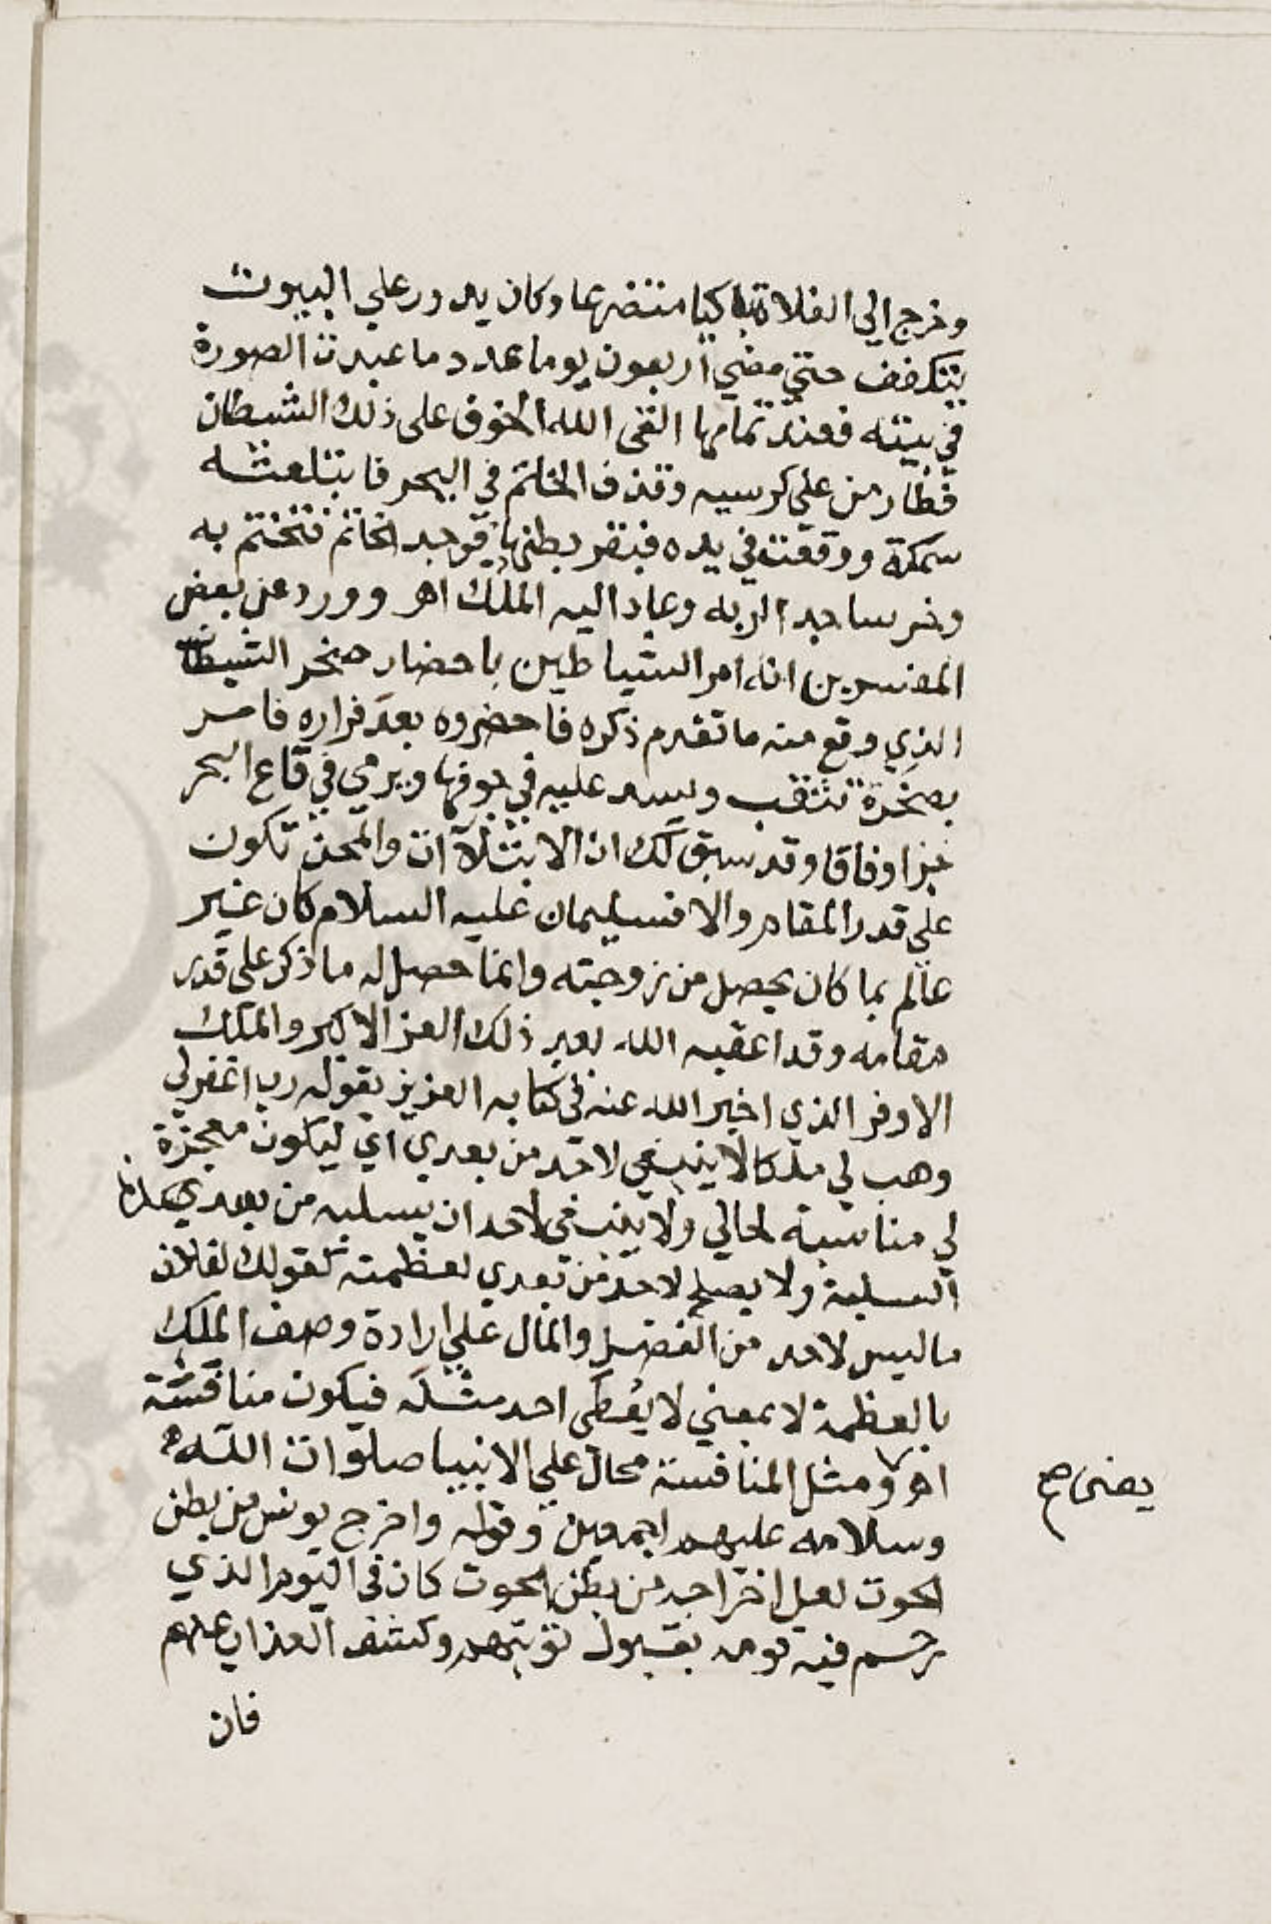 وخرج الي الفلاة باكيا متضرعا وكان يدور علي البيوت
يتكفف حتي مضي اربعون يوما عدد ما عبدت الصورة
في بيته فعند تمامها القى الله الخوف على ذلك الشيطان
فطار من علي كرسيه وقذف الخاتم في البحر فابتلعته
سمكة ووقعت في يده فبقر بطنها فوجد الخاتم فتختم به
وخر ساجدا لربه وعاد اليه الملك اهـ وورد عن بعض
المفسرين انه امر الشياطين باحضار صخر الشيطان
الذي وقع منه ما تقدم ذكره فاحضروه بعد فراره فامر
بصخرة تثقب ويسد عليه في جوفها ويرمي في قاع البحر
جزا وفاقا وقد سبق لك ان الابتلاآت والمحن تكون
علي قدر المقام والا فسليمان عليه السلام كان غير
عالم بما كان يحصل من زوجته وانما حصل له ما ذكر على قدر
مقامه وقد اعقبه الله بعد ذلك العز الاكبر والملك
الاوفر الذي اخبر الله عنه في كتابه العزيز بقوله رب اغفر لي
وهب لي ملكا لا ينبغي لاحد من بعدي اي ليكون معجزة
لي مناسبة لحالي ولا ينبغي لاحد ان يسلبه من بعدي هذه
السلبة ولا يصلح لاحد من بعدي لعظمته كقولك لفلان
ما ليس لاحد من الفضل والمال علي ارادة وصف الملك
بالعظمة لا بمعني لا يعطى احد مثله فيكون منافسة
اهـ ومثل المنافسة محال علي الانبيا صلوات الله
يعنى صح
وسلامه عليهم اجمعين وقوله واخرج يونس من بطن
الحوت لعل اخراجه من بطن الحوت كان في اليوم الذي
رحم فيه قومه بقبول توبتهم وكشف العذاب عنهم
فان